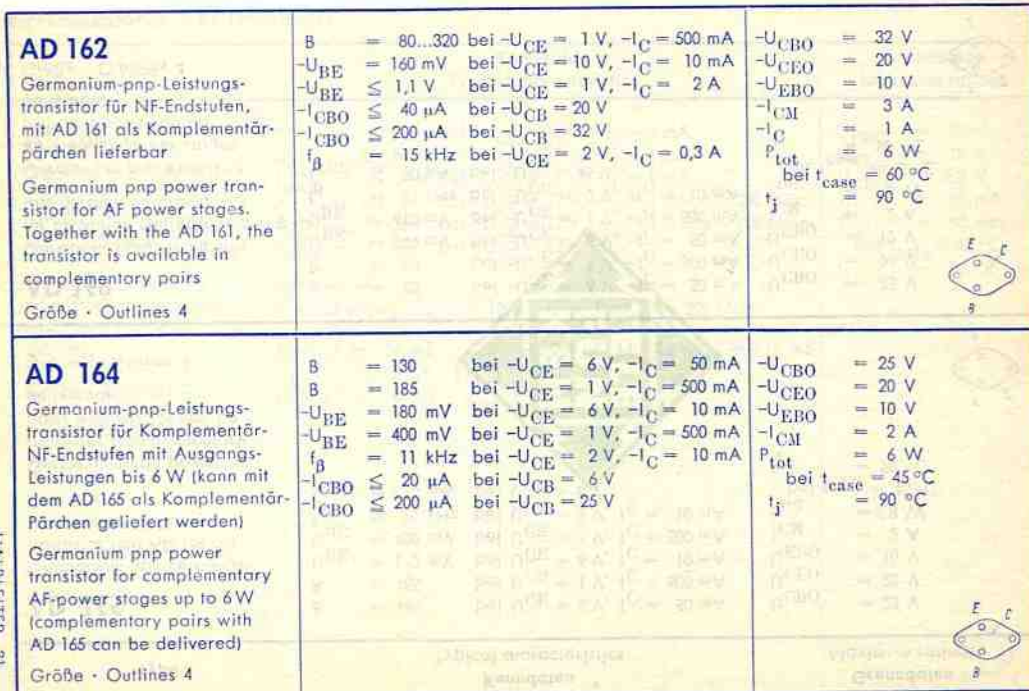 AD 162
Germanium-pnp-Leistungs-
transistor für NF-Endstufen,
mit AD 161 als Komplementär-
pärchen lieferbar
Germanium pnp power tran-
sistor for AF power stages.
Together with the AD 161, the
transistor is available in
complementary pairs
Größe · Outlines 4
B = 80...320 bei -U_CE = 1 V, -I_C = 500 mA
-U_BE = 160 mV bei -U_CE = 10 V, -I_C = 10 mA
-U_BE ≦ 1,1 V bei -U_CE = 1 V, -I_C = 2 A
-I_CBO ≦ 40 µA bei -U_CB = 20 V
-I_CBO ≦ 200 µA bei -U_CB = 32 V
f_β = 15 kHz bei -U_CE = 2 V, -I_C = 0,3 A
-U_CBO = 32 V
-U_CEO = 20 V
-U_EBO = 10 V
-I_CM = 3 A
-I_C = 1 A
P_tot = 6 W
bei t_case = 60 °C
t_j = 90 °C
E C
B
AD 164
Germanium-pnp-Leistungs-
transistor für Komplementär-
NF-Endstufen mit Ausgangs-
Leistungen bis 6 W (kann mit
dem AD 165 als Komplementär-
Pärchen geliefert werden)
Germanium pnp power
transistor for complementary
AF-power stages up to 6 W
(complementary pairs with
AD 165 can be delivered)
Größe · Outlines 4
B = 130 bei -U_CE = 6 V, -I_C = 50 mA
B = 185 bei -U_CE = 1 V, -I_C = 500 mA
-U_BE = 180 mV bei -U_CE = 6 V, -I_C = 10 mA
-U_BE = 400 mV bei -U_CE = 1 V, -I_C = 500 mA
f_β = 11 kHz bei -U_CE = 2 V, -I_C = 10 mA
-I_CBO ≦ 20 µA bei -U_CB = 6 V
-I_CBO ≦ 200 µA bei -U_CB = 25 V
-U_CBO = 25 V
-U_CEO = 20 V
-U_EBO = 10 V
-I_CM = 2 A
P_tot = 6 W
bei t_case = 45 °C
t_j = 90 °C
E C
B